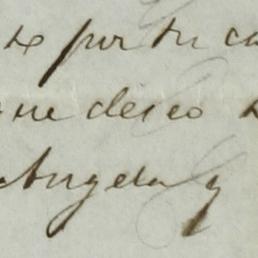 por tu ca
que deseo
Angela y